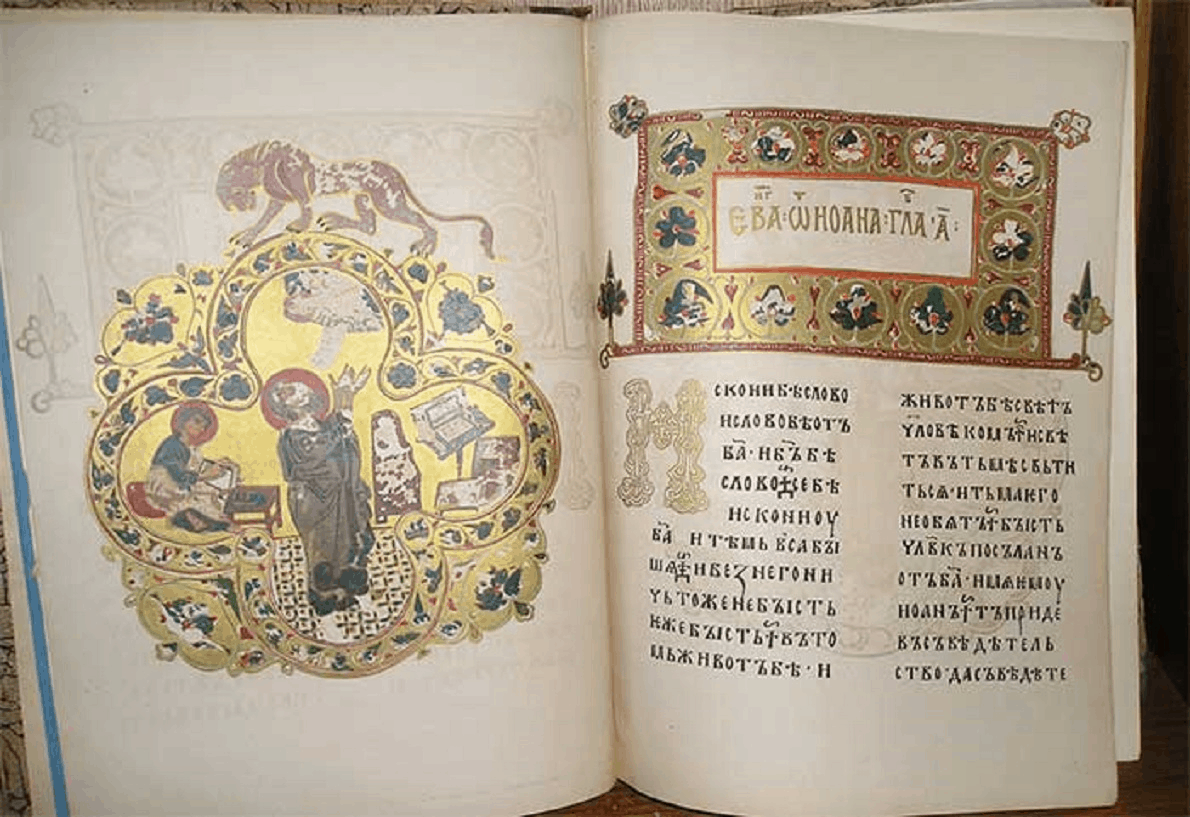 ЄВА҃Нг · Ѿ ИОАНА · ГЛА · А҃ :
И
СКОНИ БѢ СЛОВО
И СЛОВО БѢ ОТЪ
Б҃А · И Б҃Ъ БѢ
СЛОВО · СЕ БѢ
ИСКОНИ ОУ
Б҃А И ТѢМЬ ВЬСА БЫ
ШѦ · И БЕꙀ НЕГО НИ
ЧЬТОЖЕ НЕ БЫСТЬ
ИЖЕ БЫСТЬ · ВЪ ТО
МЬ ЖИВОТЪ БѢ · И
ЖИВОТЪ БѢ СВѢТЪ
ЧЛОВѢКОМЪ · И СВѢ
ТЪ ВЪ ТЬМѢ СВЬТИ
ТЬСѦ · И ТЬМА ѤГО
НЕ ОБѦТЪ · БЫСТЬ
ЧЛ҃ВКЪ ПОСЪЛАНЪ
ОТЪ Б҃А · ИМѦ ѤМОУ
ИОАНЪ · ТЪ ПРИДЕ
ВЪ СЪВѢДѢТЕЛЬ
СТВО · ДА СЪВѢДѢТЕ